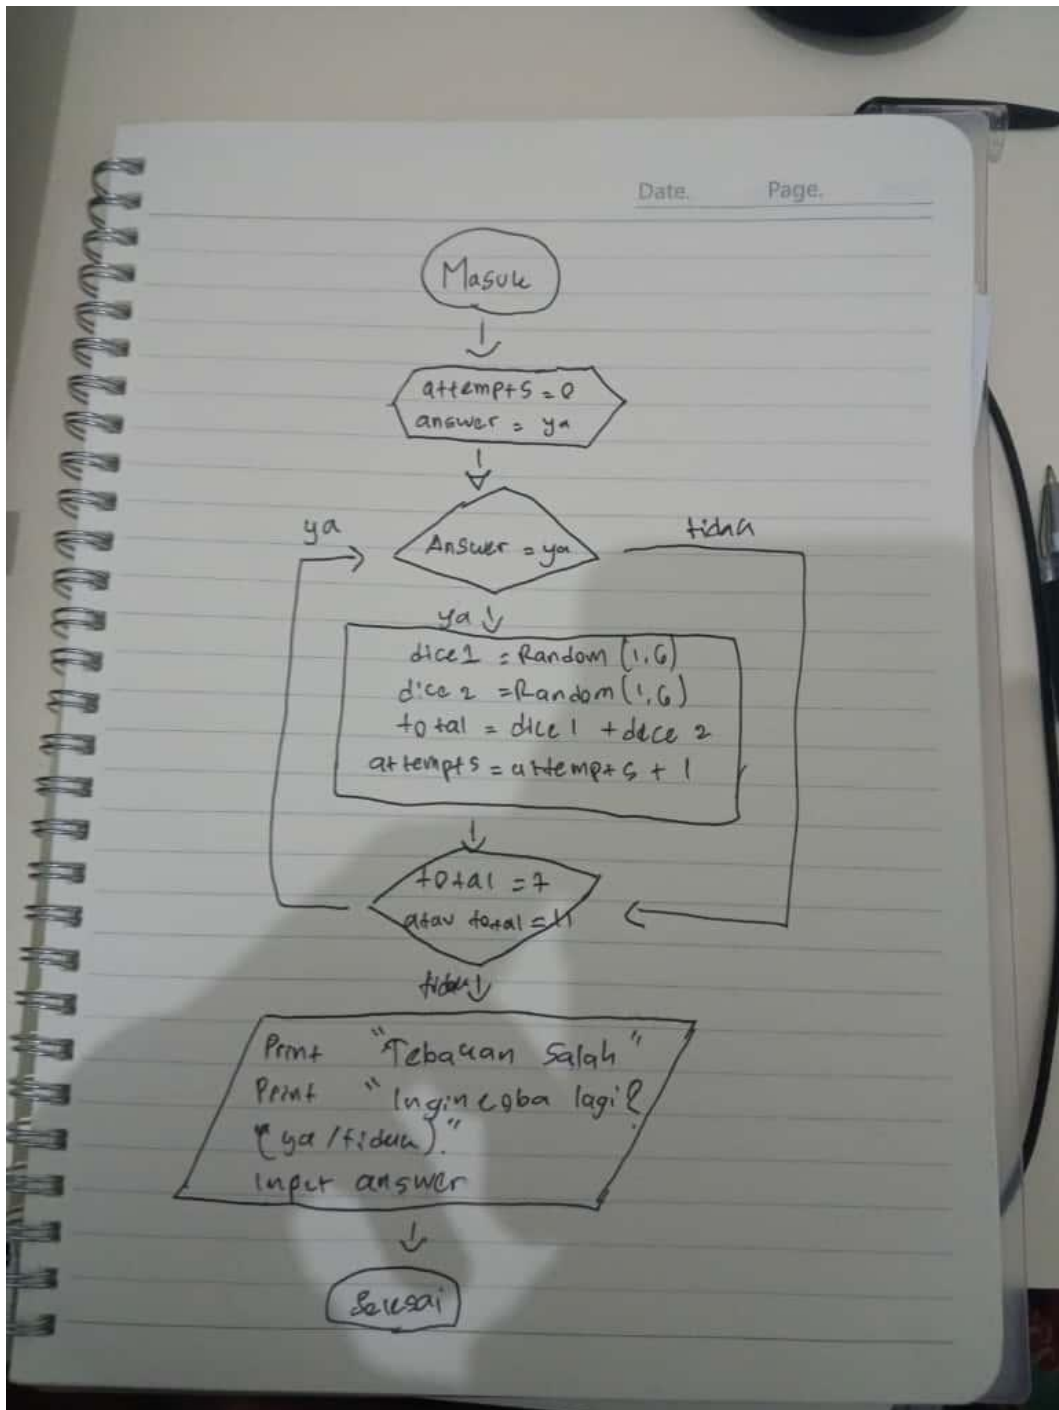 Date. Page.
Masuk
attempts = 0
answer = ya
ya
Answer = ya
tidak
ya
dice 1 = Random (1,6)
dice 2 = Random (1,6)
total = dice 1 + dice 2
attempts = attempts + 1
total = 7
atau total = 11
tidak
Print "Tebakan Salah"
Print "Ingin coba lagi?
(ya/tidak)."
Input answer
Selesai